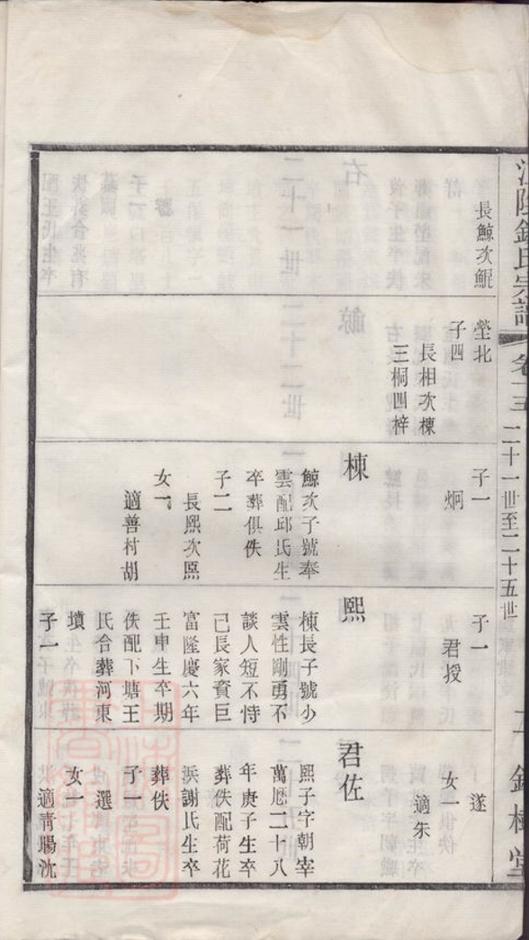 氏宗譜
卷十三
二十一世至二十五世
長鯨次鯤
塋北
子四
長相次棟
三桐四梓
子一
炯
棟
鯨次子號奉
雲配邱氏生
卒葬俱佚
子二
長熙次照
女一
適善村胡
子一
君授
熙
棟長子號少
雲性剛勇不
談人短不恃
己長家資巨
富隆慶六年
壬申生卒期
佚配下塘王
氏合葬河東
墳
子一
遂
女一
適朱
君佐
熙子字朝宰
萬厯二十八
年庚子生卒
葬佚配荷花
浜謝氏生卒
葬佚
子一
選
女一
適青暘沈